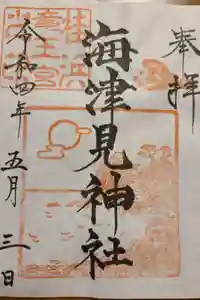 奉拝
海津見神社
桂浜
竜王宮
令和四年
五月
三日